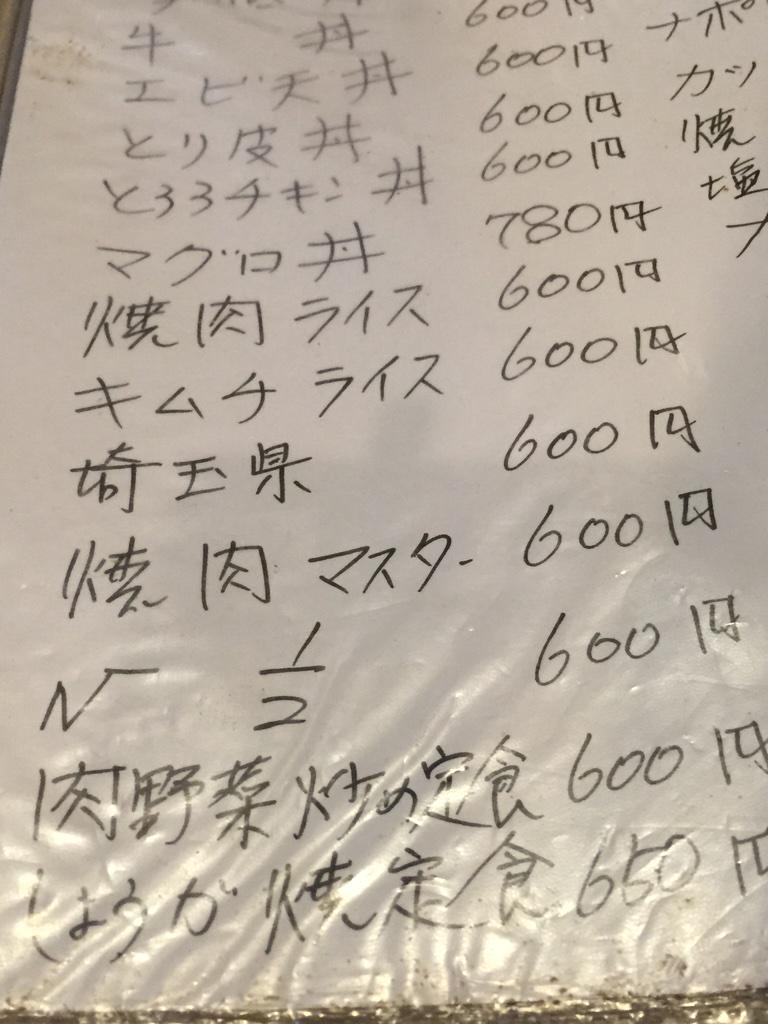 丼 600円
牛 丼 600円 ナポ
エビ天丼 600円 カツ
とり皮丼 600円 焼
とろろチキン丼 780円 塩
マグロ丼 600円
焼肉ライス 600円
キムチライス 600円
埼玉県 600円
焼肉マスター 600円
√ 1/2
肉野菜炒め定食 600円
しょうが焼定食 650円